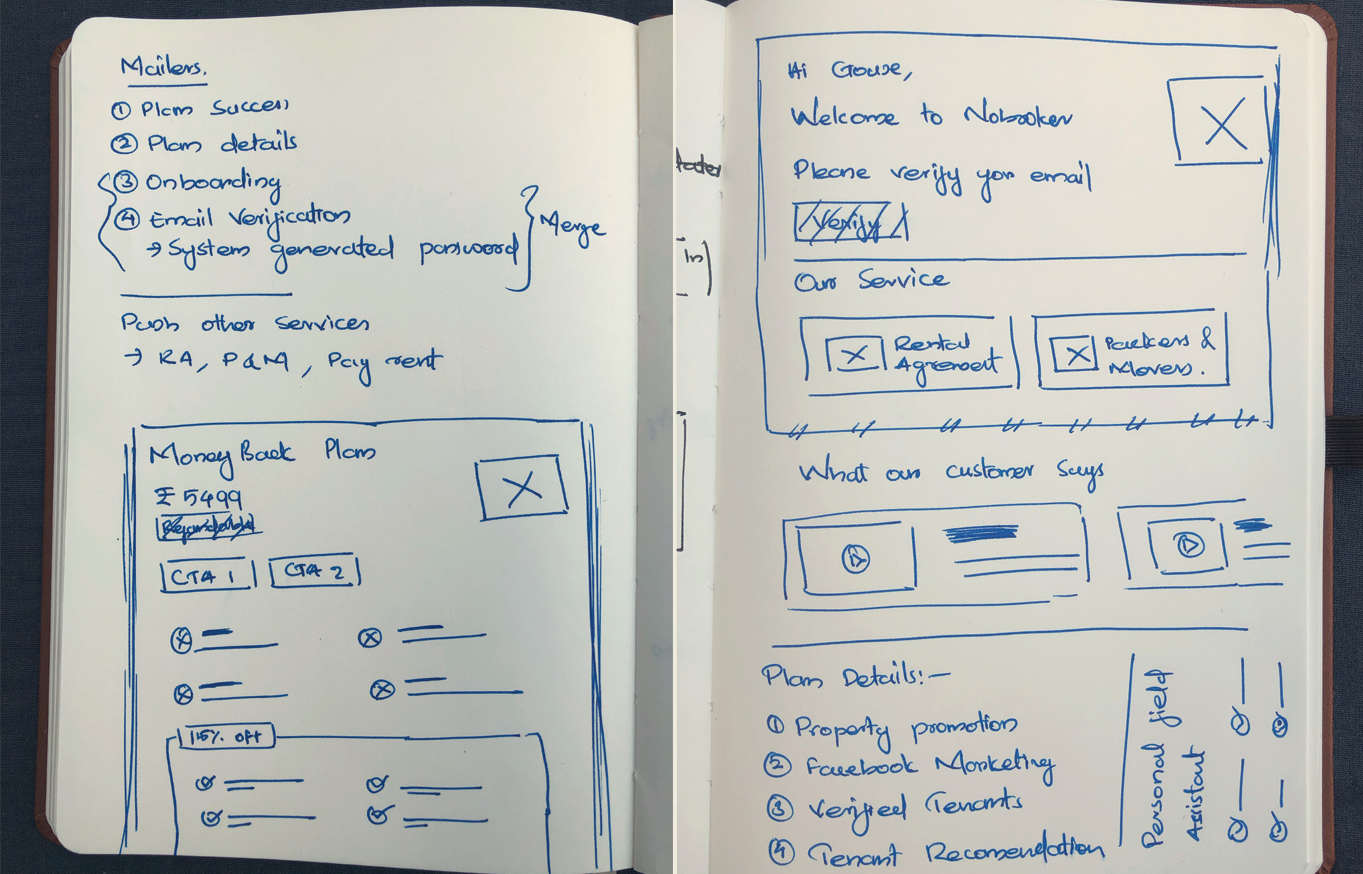 Mailers.
① Plan Success
② Plan details
③ Onboarding
④ Email Verification
→ System generated password
Merge
Push other services
→ RA, P&M, Pay rent
Money Back Plan
₹ 5499
CTA 1
CTA 2
15% off
in)
Hi Gouse,
Welcome to Nobroker
Please verify your email
Verify
Our Service
Rental
Agreement
Packers &
Movers.
What our customer says
Plan Details:-
① Property promotion
② Facebook Marketing
③ Verified Tenants
④ Tenant Recomendation
Personal field
Assistant